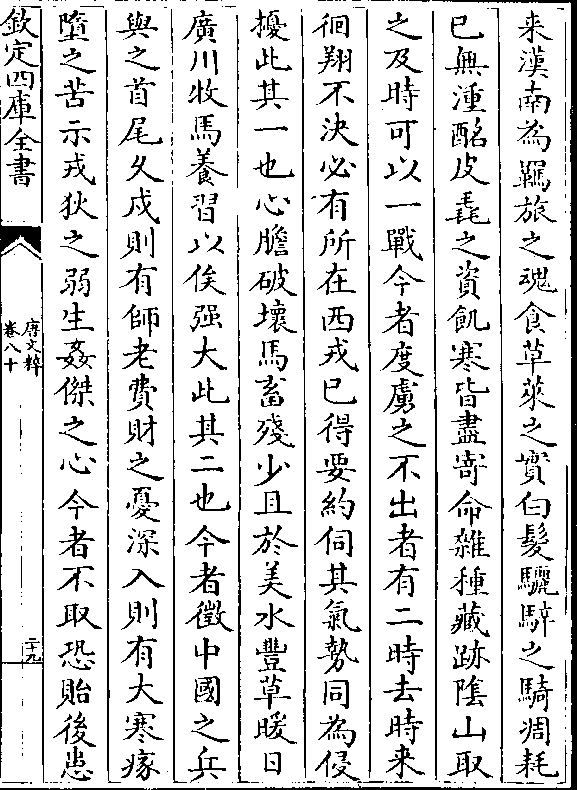 来漢南為羈旅之魂食草萊之實白髮驪騂之騎凋耗
已無湩酪皮毳之資飢寒皆盡寄命雜種藏跡隂山取
之及時可以一戰今者度虜之不出者有二時去時来
徊翔不決必有所在西戎已得要約伺其氣勢同為侵
擾此其一也心膽破壞馬畜殘少且於美水豐草暖日
廣川牧馬養習以俟强大此其二也今者徴中國之兵
與之首尾乆戍則有師老費財之憂深入則有大寒瘃
墮之苦示戎狄之弱生姦傑之心今者不取恐貽後患
欽定四庫全書
唐文粹
卷八十
二十九